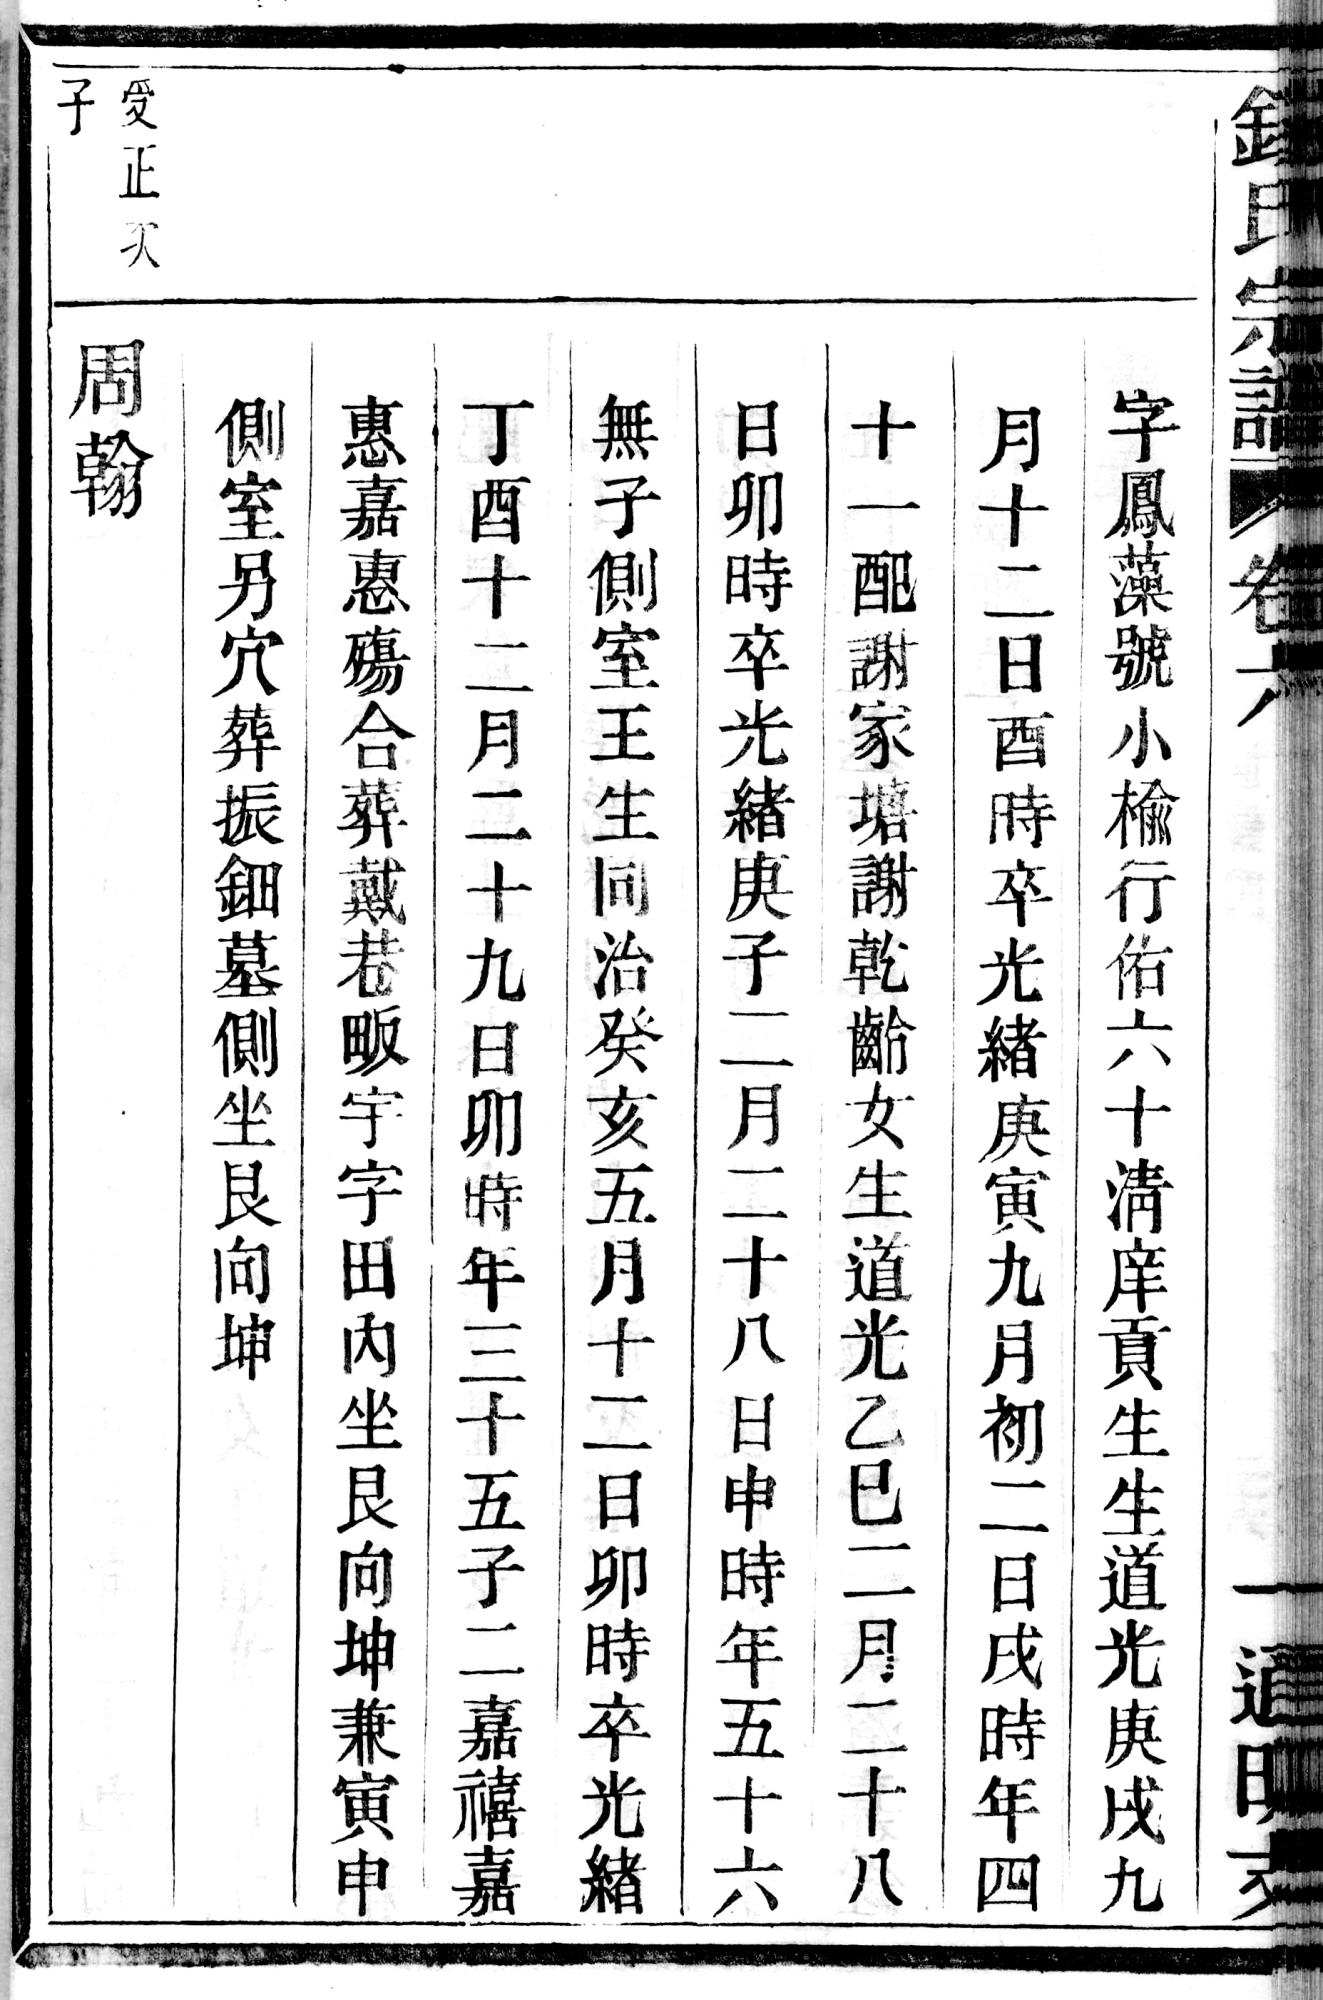 氏宗譜
卷六
一
通明支
字鳳藻號小楡行佑六十淸庠貢生生道光庚戌九
月十二日酉時卒光緒庚寅九月初二日戌時年四
十一配謝家塘謝乾齡女生道光乙巳二月二十八
日卯時卒光緒庚子二月二十八日申時年五十六
無子側室王生同治癸亥五月十二日卯時卒光緒
丁酉十二月二十九日卯時年三十五子二嘉禧嘉
惠嘉惠殤合葬戴巷畈宇字田內坐艮向坤兼寅申
側室另穴葬振鈿墓側坐艮向坤
受正次
子
周翰